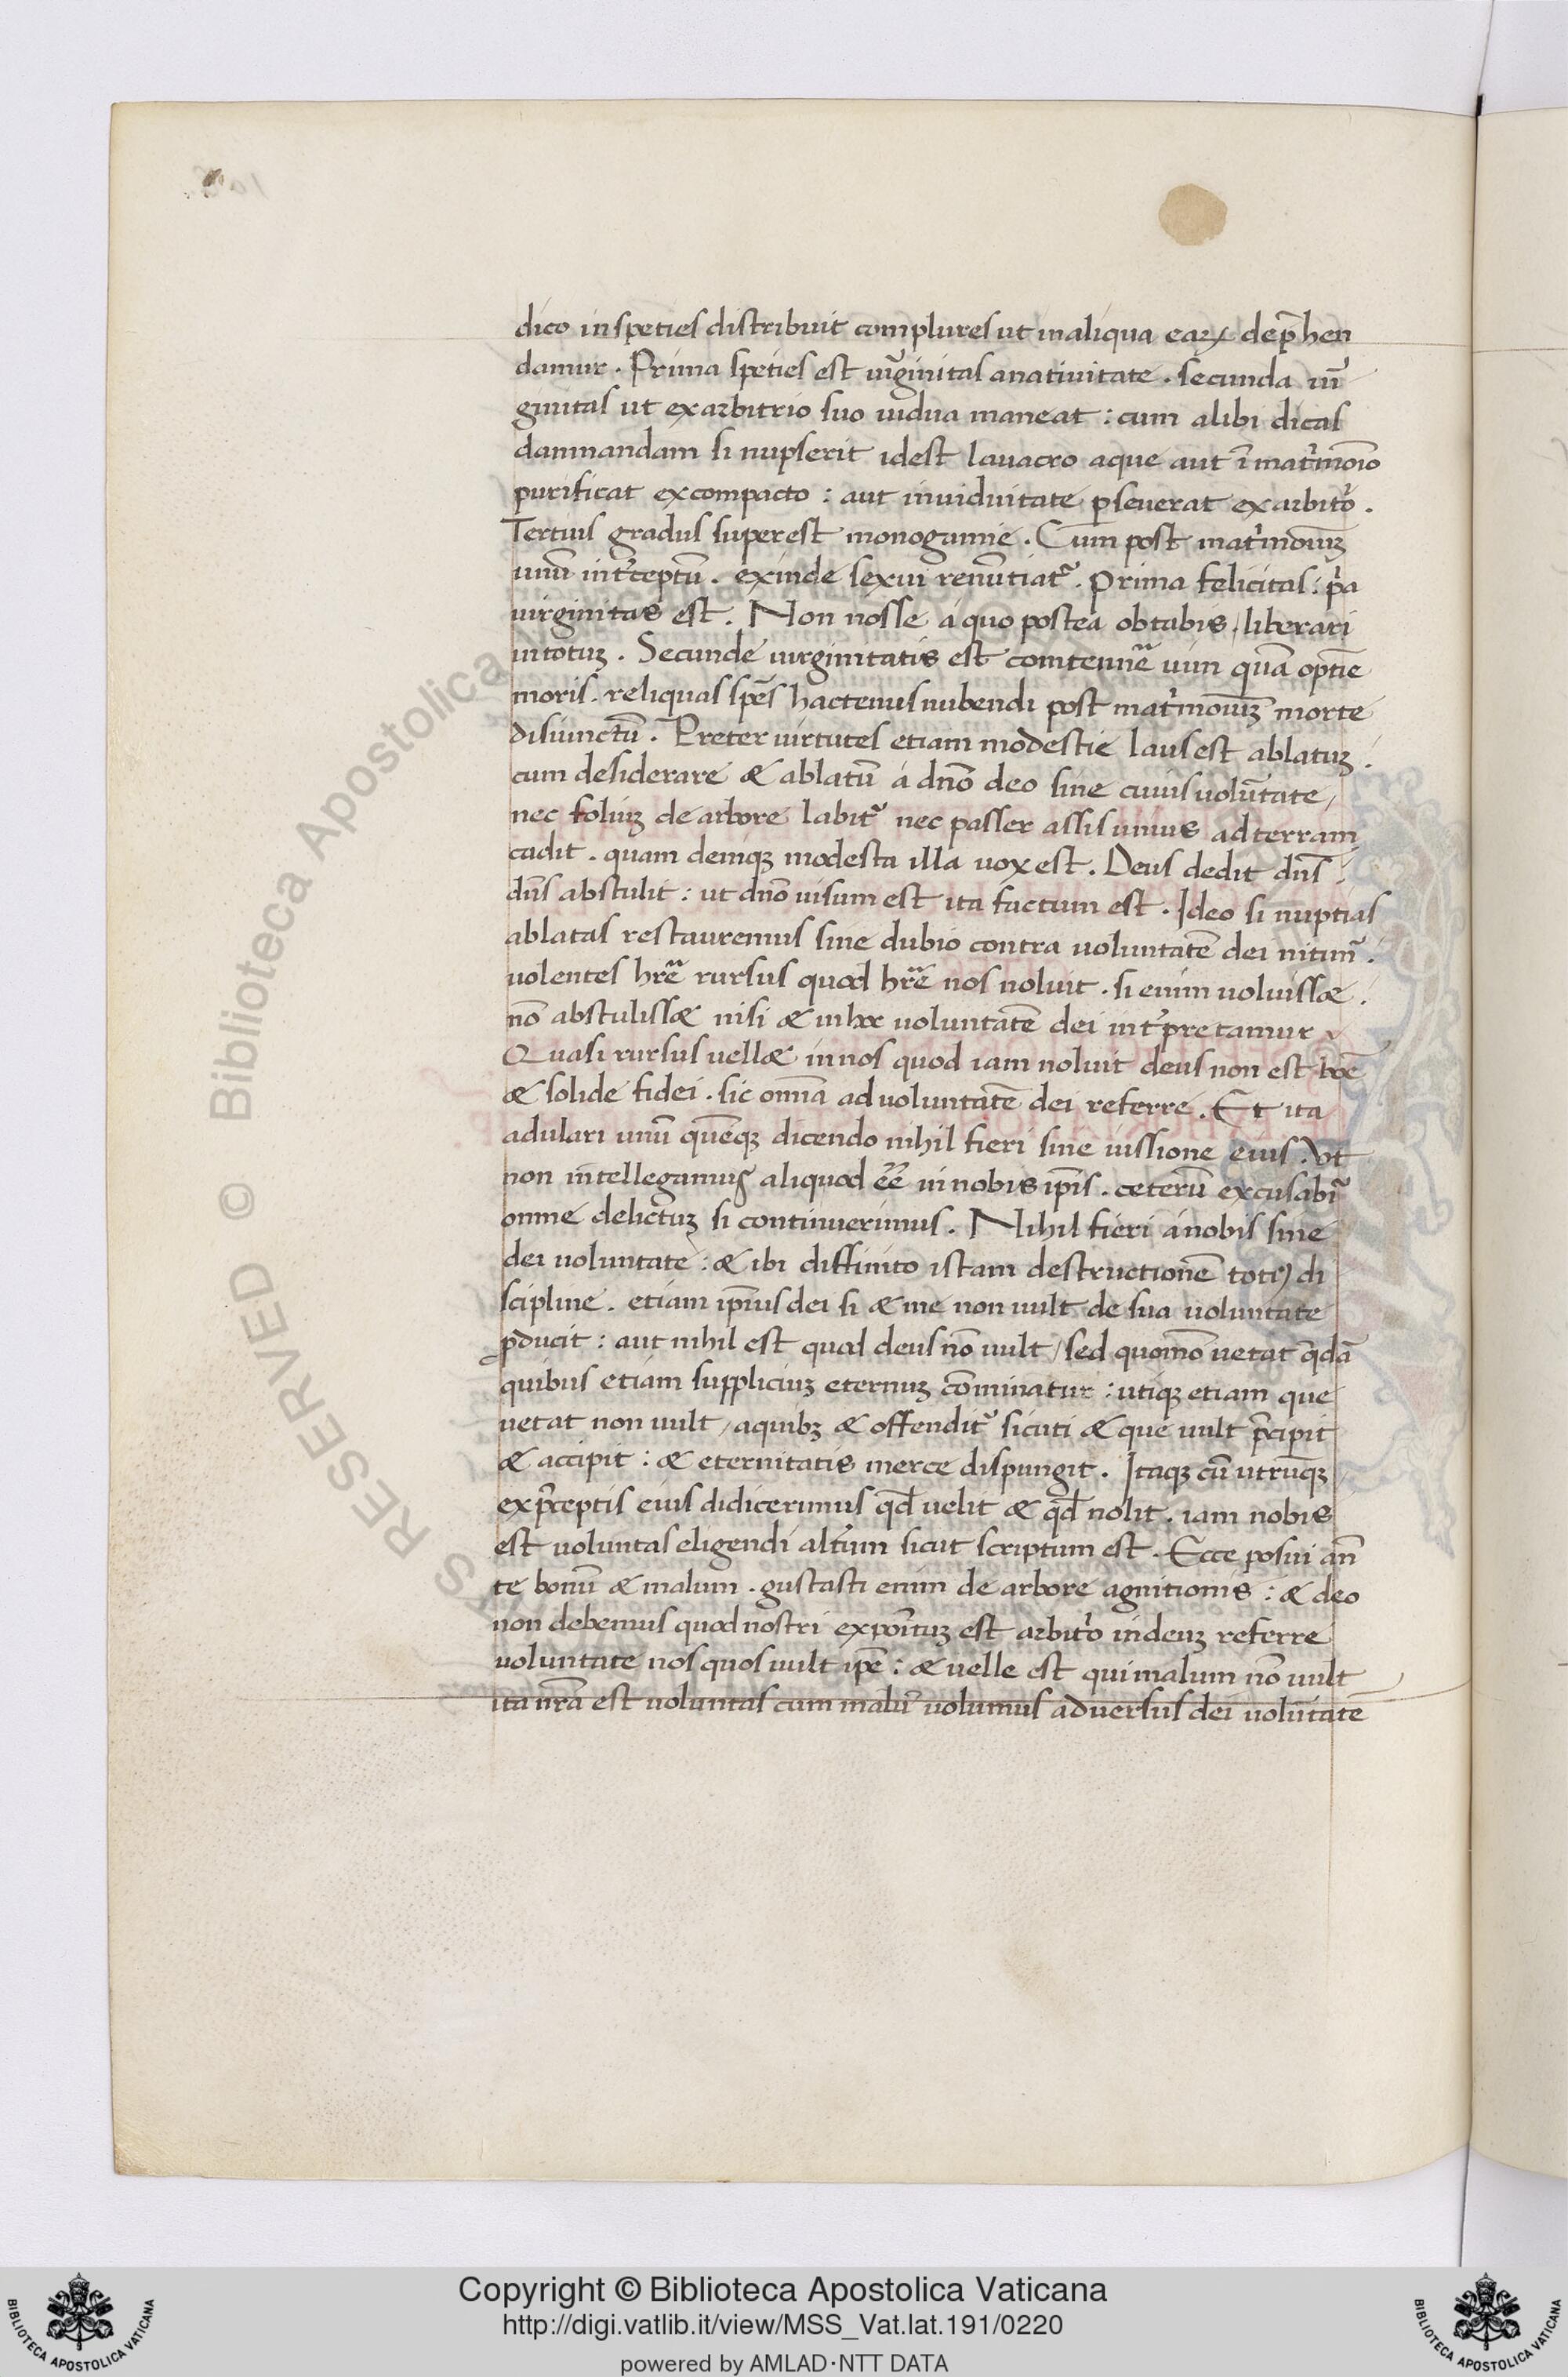 dico in speties distribuit complures ut in aliqua earꝝ dep̄hen
damur . Prima speties est uīginitas a natiuitate . secunda uī
ginitas ut ex arbitrio suo uidua maneat : cum alibi dicas
damnandam si nupserit idest lauacro aque aut ī matrimōio
purificat ex compacto : aut in uiduitate ꝑseuerat ex arbitrͥo .
Tertius gradus superest monogamie . Cum post matrͥmoniuꝫ
unū intʳceptū . exinde sexui renūtiatᷣ . Prima felicitas : pͥa
uirginitas est . Non nosse a quo postea obtabis , liberari
in totuꝫ . Secunde uirginitatis est comtennē uim quā optīe
moris . reliquas spēs hactenus nubendi post matrͥmoniuꝫ morte
disiunctū . Preter uirtutes etiam modestie laus est ablatuꝫ .
cum desiderare & ablatū á dn̄o deo sine cuius volūtate ,
nec foliuꝫ de arbore labitᷣ nec passer assis unius ad terram
cadit . quam deniqꝫ modesta illa uox est . Deus dedit dn̄s ,
dn̄s abstulit : ut dn̄o uisum est ita factum est . Ideo si nuptias
ablatas restauremus sine dubio contra uoluntatē dei nitimᷣ .
uolentes hr̄e rursus quod hr̄e nos noluit . si enim uoluiss& .
nō abstuliss& nisi & in hoc uoluntatē dei intʳpretamur
Quasi rursus uell& in nos quod iam noluit deus non est boē
& solide fidei . sic om̄a ad uoluntatē dei referre . Et ita
adulari unū quēqꝫ dicendo nihil fieri sine iussione eius . Vt
non intellegamus aliquod eē̄ in nobis ip̄is . ceterū excusabiᷣ
omne delictuꝫ si continuerimus . Nihil fieri á nobis sine
dei uoluntate : & ibi diffinito istam destructionē totiꝰ di
scipline . etiam ip̄ius dei si & me non uult de sua uoluntate
ꝓducit : aut nihil est quod deus nō uult , sed quomō uetat q̄dā
quibus etiam suppliciuꝫ eternuꝫ cōminatur : utiqꝫ etiam que
uetat non uult , a quibꝫ & offenditᷣ sicuti & que uult p̄cipit
& accipit : & eternitatis merce dispungit . Itaqꝫ cū utrūqꝫ
ex p̄ceptis eius didicerimus qd̄ uelit & qd̄ nolit . iam nobis
est uoluntas eligendi altʳum sicut scriptum est . Ecce posui an̄
te bonū & malum . gustasti enim de arbore agnitionis : & deo
non debemus quod nostri expoītuꝫ est arbitrͥo in deuꝫ referre
uoluntatē nos quos uult ip̄e : & uelle est qui malum nō uult
ita nr̄a est uoluntas cum malū uolumus aduersus dei uolūtatē
© Biblioteca Apostolica
RESERVED
Copyright © Biblioteca Apostolica Vaticana
http://digi.vatlib.it/view/MSS_Vat.lat.191/0220
powered by AMLAD·NTT DATA
BIBLIOTECA APOSTOLICA VATICANA
BIBLIOTECA APOSTOLICA VATICANA